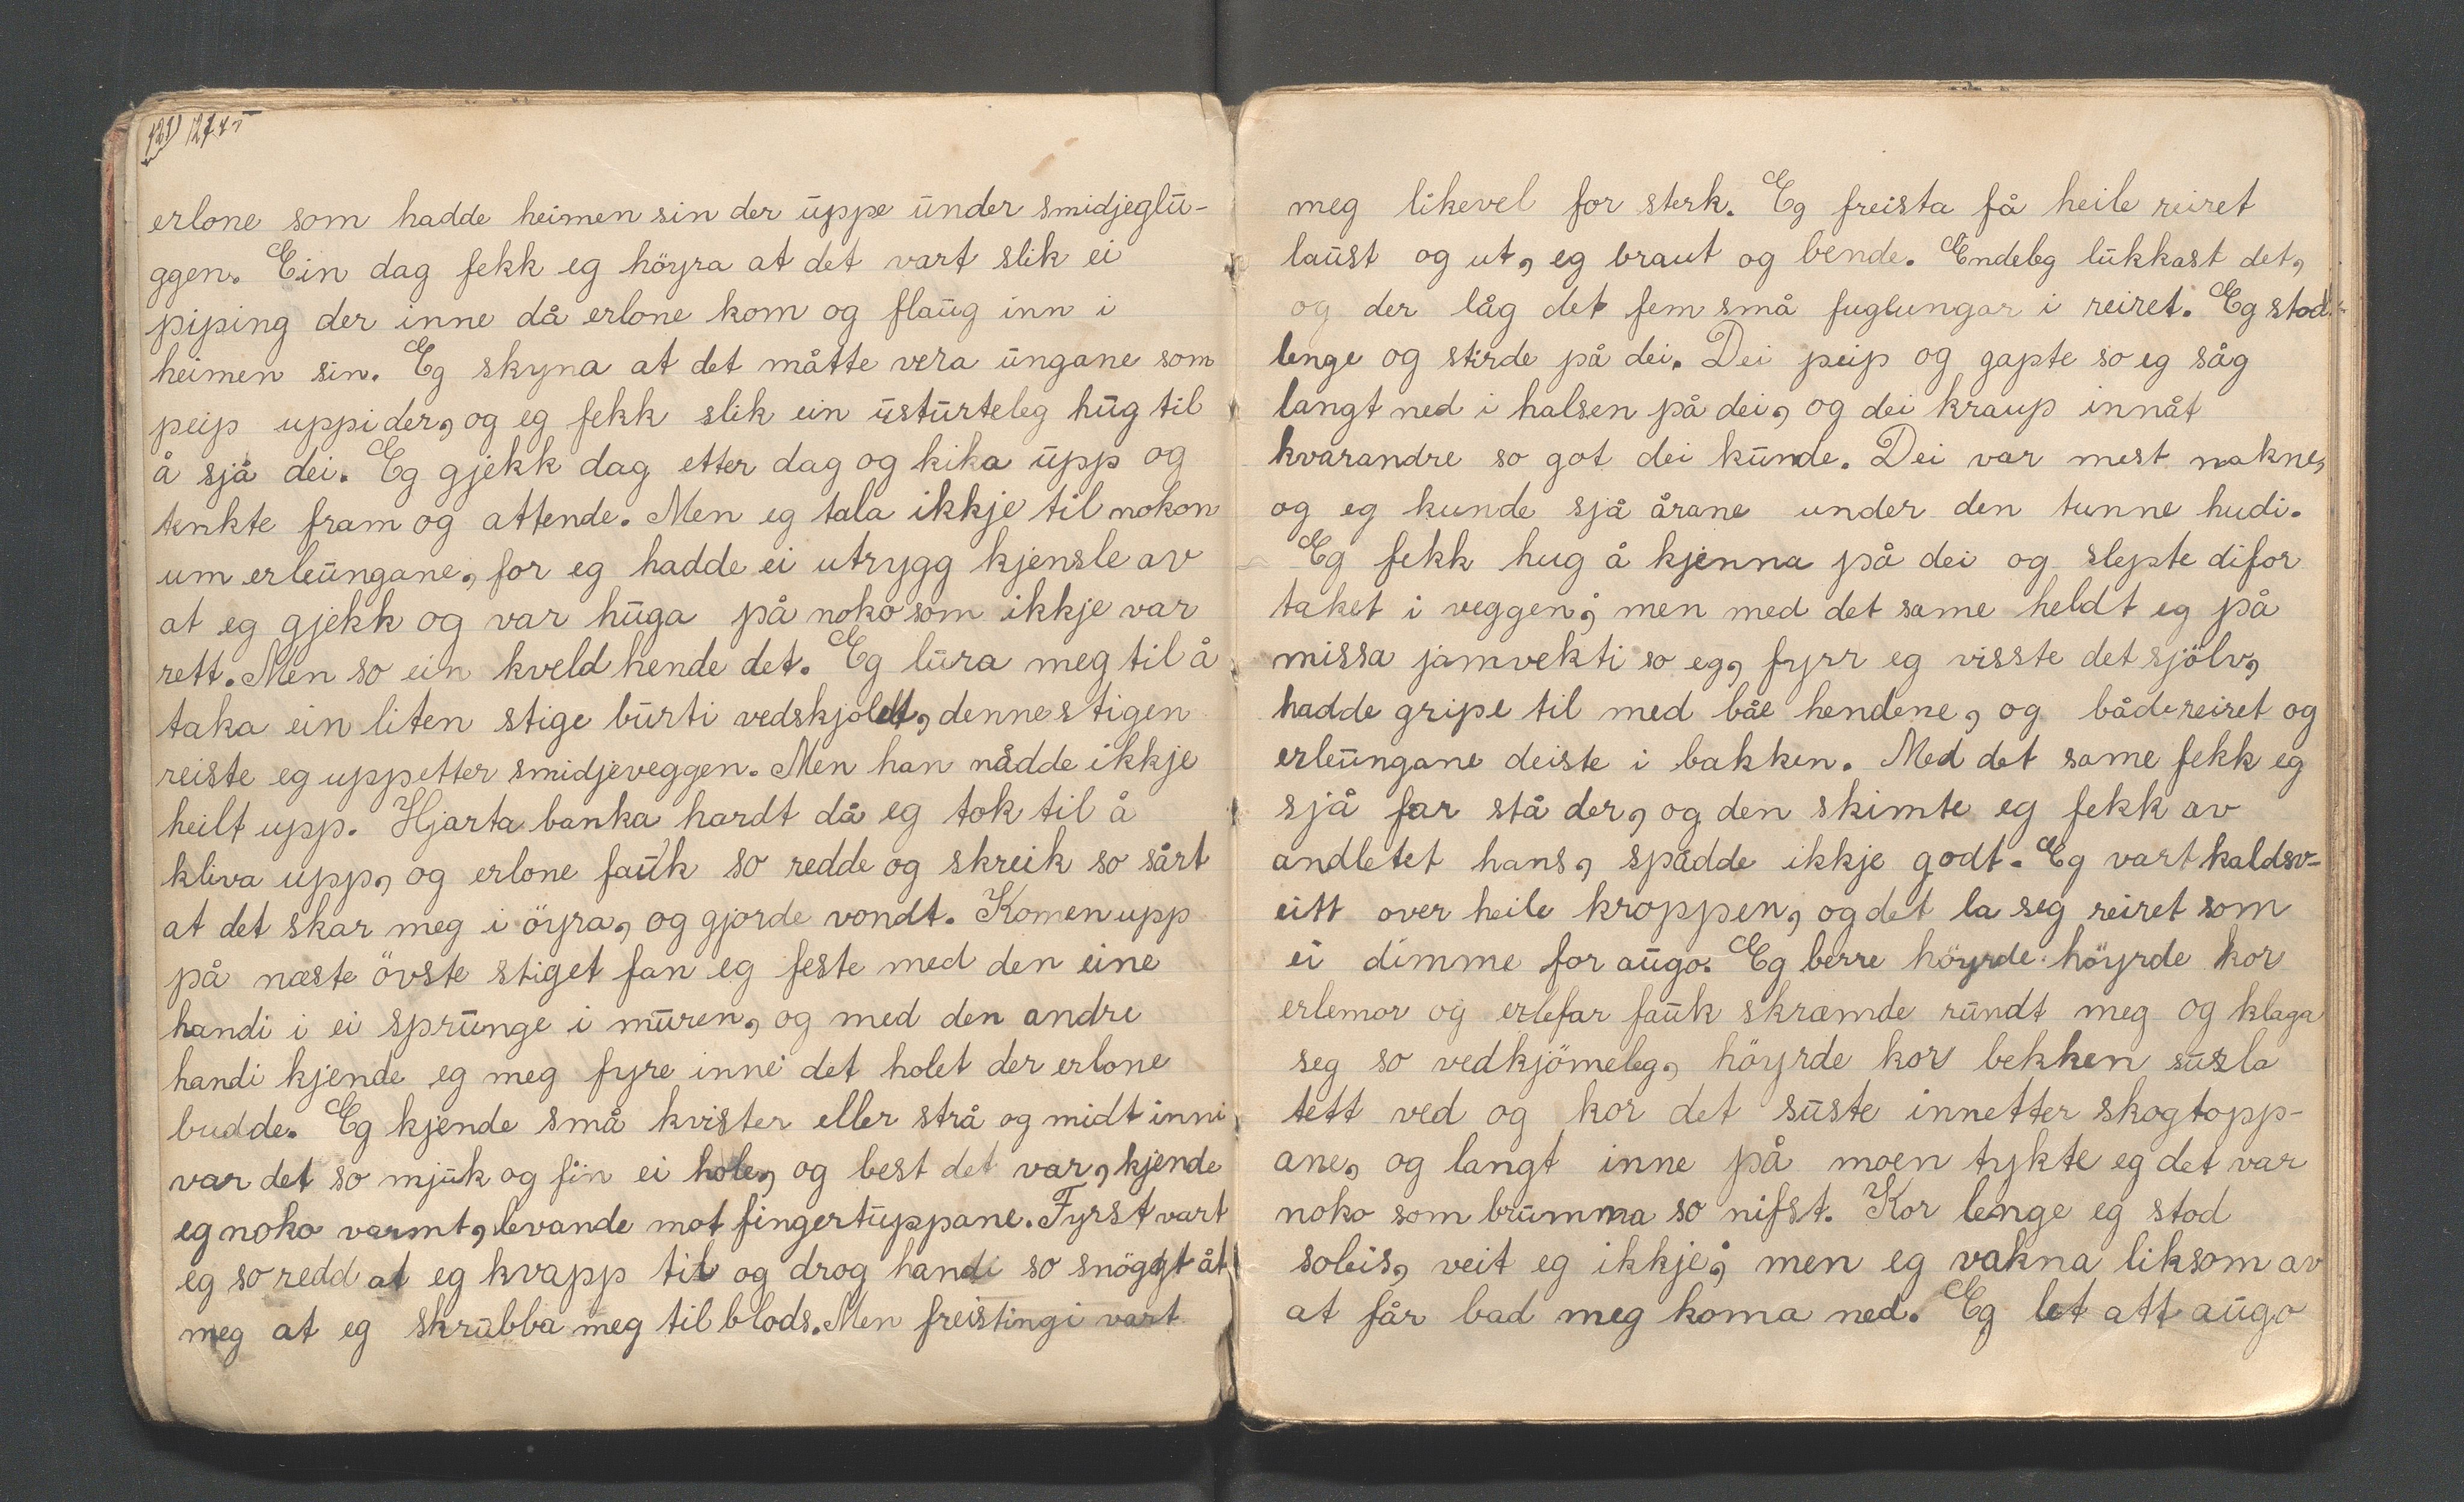 erlone som hadde heimen sin der uppe under smidjeglu-
ggen. Ein dag fekk eg höyra at det vart slik ei
piping der inne då erlone kom og flaug inn i
heimen sin. Eg skyna at det måtte vera ungane som
peip uppi der, og eg fekk slik ein ustürteleg hug til
å sjå dei. Eg gjekk dag etter dag og kika upp og
tenkte fram og attende. Men eg tala ikkje til nokon
um erleungane, for eg hadde ei utrygg kjensle av
at eg gjekk og var huga på noko som ikkje var
rett. Men so ein kveld hende det. Eg lura meg til å
taka ein liten stige burti vedskjolet, denne stigen
reiste eg uppetter smidjeveggen. Men han nådde ikkje
heilt upp. Hjarta banka hardt då eg tok til å
kliva upp, og erlone fauk so redde og skreik so sårt
at det skar meg i öyra, og gjorde vondt. Komen upp
på næste övste stiget fan eg feste med den eine
handi i ei sprunge i muren, og med den andre
handi kjende eg meg fyre inne i det holet der erlone
budde. Eg kjende små kvister eller strå og midt inni
var det so mjuk og fin ei hole, og best det var, kjende
eg noko varmt, levande mot fingertuppane. Fyrst vart
eg so redd at eg kvapp til og drog handi so snöggt åt
meg at eg skrubba meg til blods. Men freistingi vart
meg likevel for sterk. Eg freista få heile reiret
laust og ut, eg braut og bende. Endeleg lukkast det,
og der låg det fem små fuglungar i reiret. Eg stod
lenge og stirde på dei. Dei peip og gapte so eg såg
langt ned i halsen på dei, og dei kraup innåt
kvarandre so got dei kunde. Dei var mest nakne,
og eg kunde sjå årane under den tunne hudi.
Eg fekk hug å kjenna på dei og slepte difor
taket i veggen; men med det same heldt eg på
missa jamvekti so eg, fyrr eg visste det sjölv,
hadde gripe til med båe hendene, og både reiret og
erleungane deiste i bakken. Med det same fekk eg
sjå far stå der, og den skimte eg fekk av
andletet hans, spådde ikkje godt. Eg vart kaldsv-
eitt over heile kroppen, og det la seg reiret som
ei dimme for augo. Eg berre höyrde höyrde kor
erlemor og erlefar fauk skræmde rundt meg og klaga
seg so vedkjömeleg, höyrde kor bekken susla
tett ved og kor det suste innetter skogtopp-
ane, og langt inne på moen tykte eg det var
noko som brumma so nifst. Kor lenge eg stod
soleis, veit eg ikkje; men eg vakna liksom av
at får bad meg koma ned. Eg let att augo